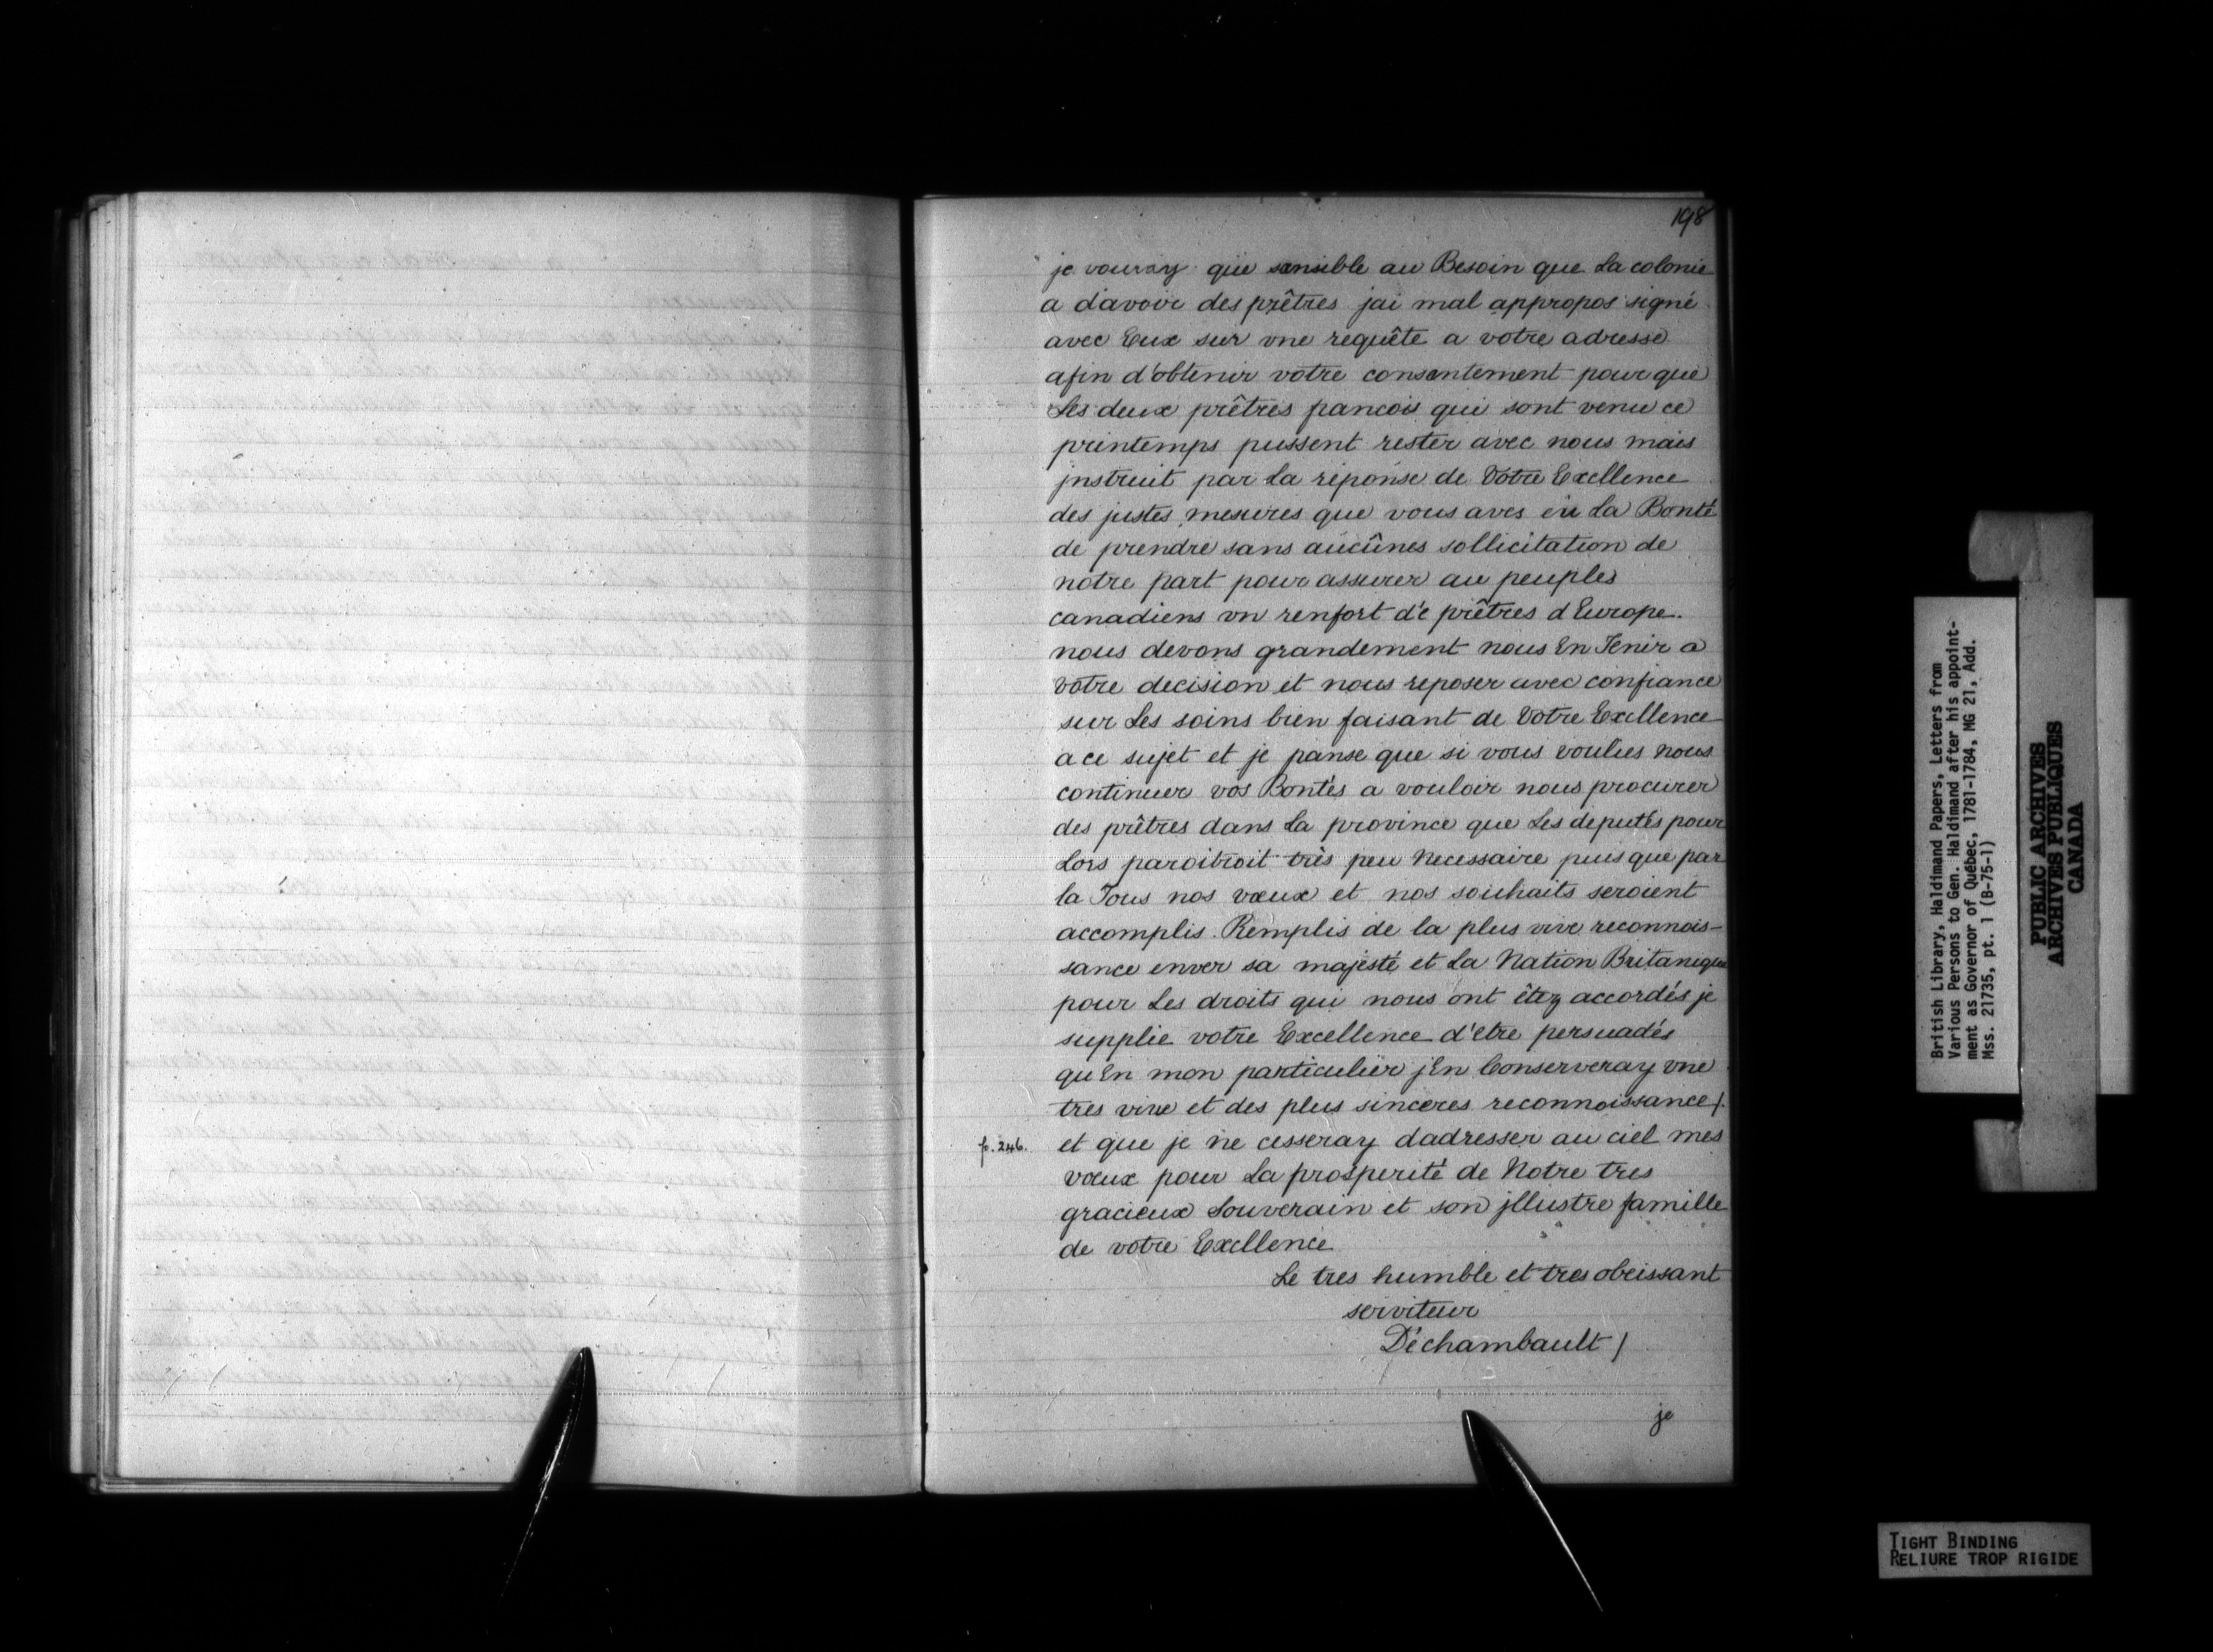 198
je vouray qúe sensible au Besoin que La colonie
a davoir des prêtres jai mal appropos signé
avec Eux sur vne requête a votre adresse
afin d'obtenir votre consentement pour que
Les deux prêtres pancois qui sont venu ce
printemps pussent rester avec nous mais
jnstruit par La réponse de Votre Excellence
des justes mesures que vous aves éu La Bonté
de prendre sans aucûnes sollicitation de
notre part pour assurer au peuples
canadiens vn renfort dé prêtres d Europe.
nous devons grandement nous En Tenir a
votre decision et nous reposer avec confiance
sur Les soins bien faisant de Votre Excellence
a ce sujet et je panse que si vous voulies nous
continuer vos Bontés a vouloir nous procurer
des prêtres dans La province que Les deputés pour
Lors paroitroit très peu Necessaire puis que par
la Tous nos vœux et nos souhaits seroient
accomplis. Remplis de la plus vive reconnois-
sance enver sa majesté et La Nation Britanique
pour Les droits qui nous ont êtez accordés je
supplie votre Excellence d'etre persuadés
qu En mon particulier jEn Conserveray vne
tres vive et des plus sinceres reconnoissance/.
p. 246. et que je ne cesseray dadresser au ciel mes
vœux pour La prosperité de Notre tres
gracieux Souverain et son jllustre famille
de votre Excellence
Le tres humble et tres obeissant
serviteur
Déchambault /
je
British Library, Haldimand Papers, Letters from
Various Persons to Gen. Haldimand after his appoint-
ment as Governor of Québec, 1781-1784, MG 21, Add.
Mss. 21735, pt. 1 (B-75-1)
PUBLIC ARCHIVES
ARCHIVES PUBLIQUES
CANADA
TIGHT BINDING
RELIURE TROP RIGIDE